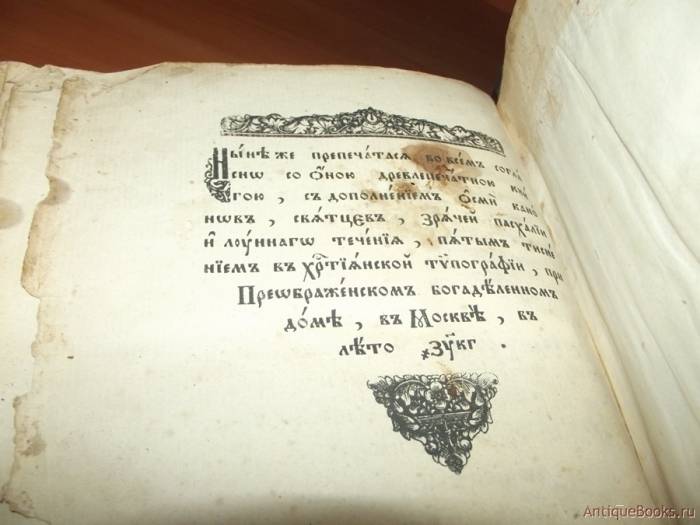 Ны́нѣ же препеча́тася во все́мъ согла́
сиѡ со ѻ҆́ною древлепеча́тною кни́
гою , съ дополне́нїемъ ѻ҆сми́ кано́
нѡвъ , свѧ́тцевъ , зрѧ́чей пасха́лїи
и҆ лꙋ́ннагѡ тече́нїѧ , пѧ́тымъ тисне́
нїемъ въ хрⷭ҇тїѧ́нской тѷпогра́фїи , при
Преѡбраже́нскомъ богадѣ́ленномъ
до́мѣ , въ Москвѣ̀ , въ
лѣ́то ҂зу҃кг .
AntiqueBooks.ru